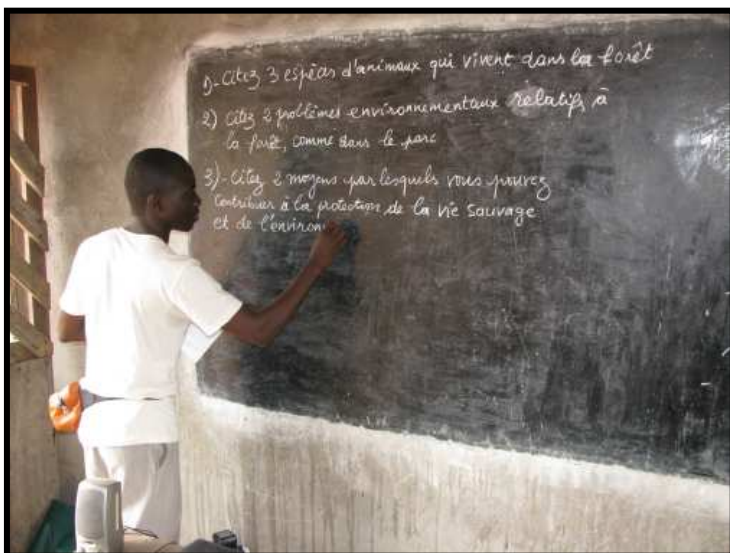 1)- Citez 3 espèces d'animaux qui vivent dans la forêt
2) Citez 2 problèmes environnementaux relatifs à
la forêt, comme dans le parc
3)- Citez 2 moyens par lesquels vous pouvez
Contribuer à la protection de la vie sauvage
et de l'environ